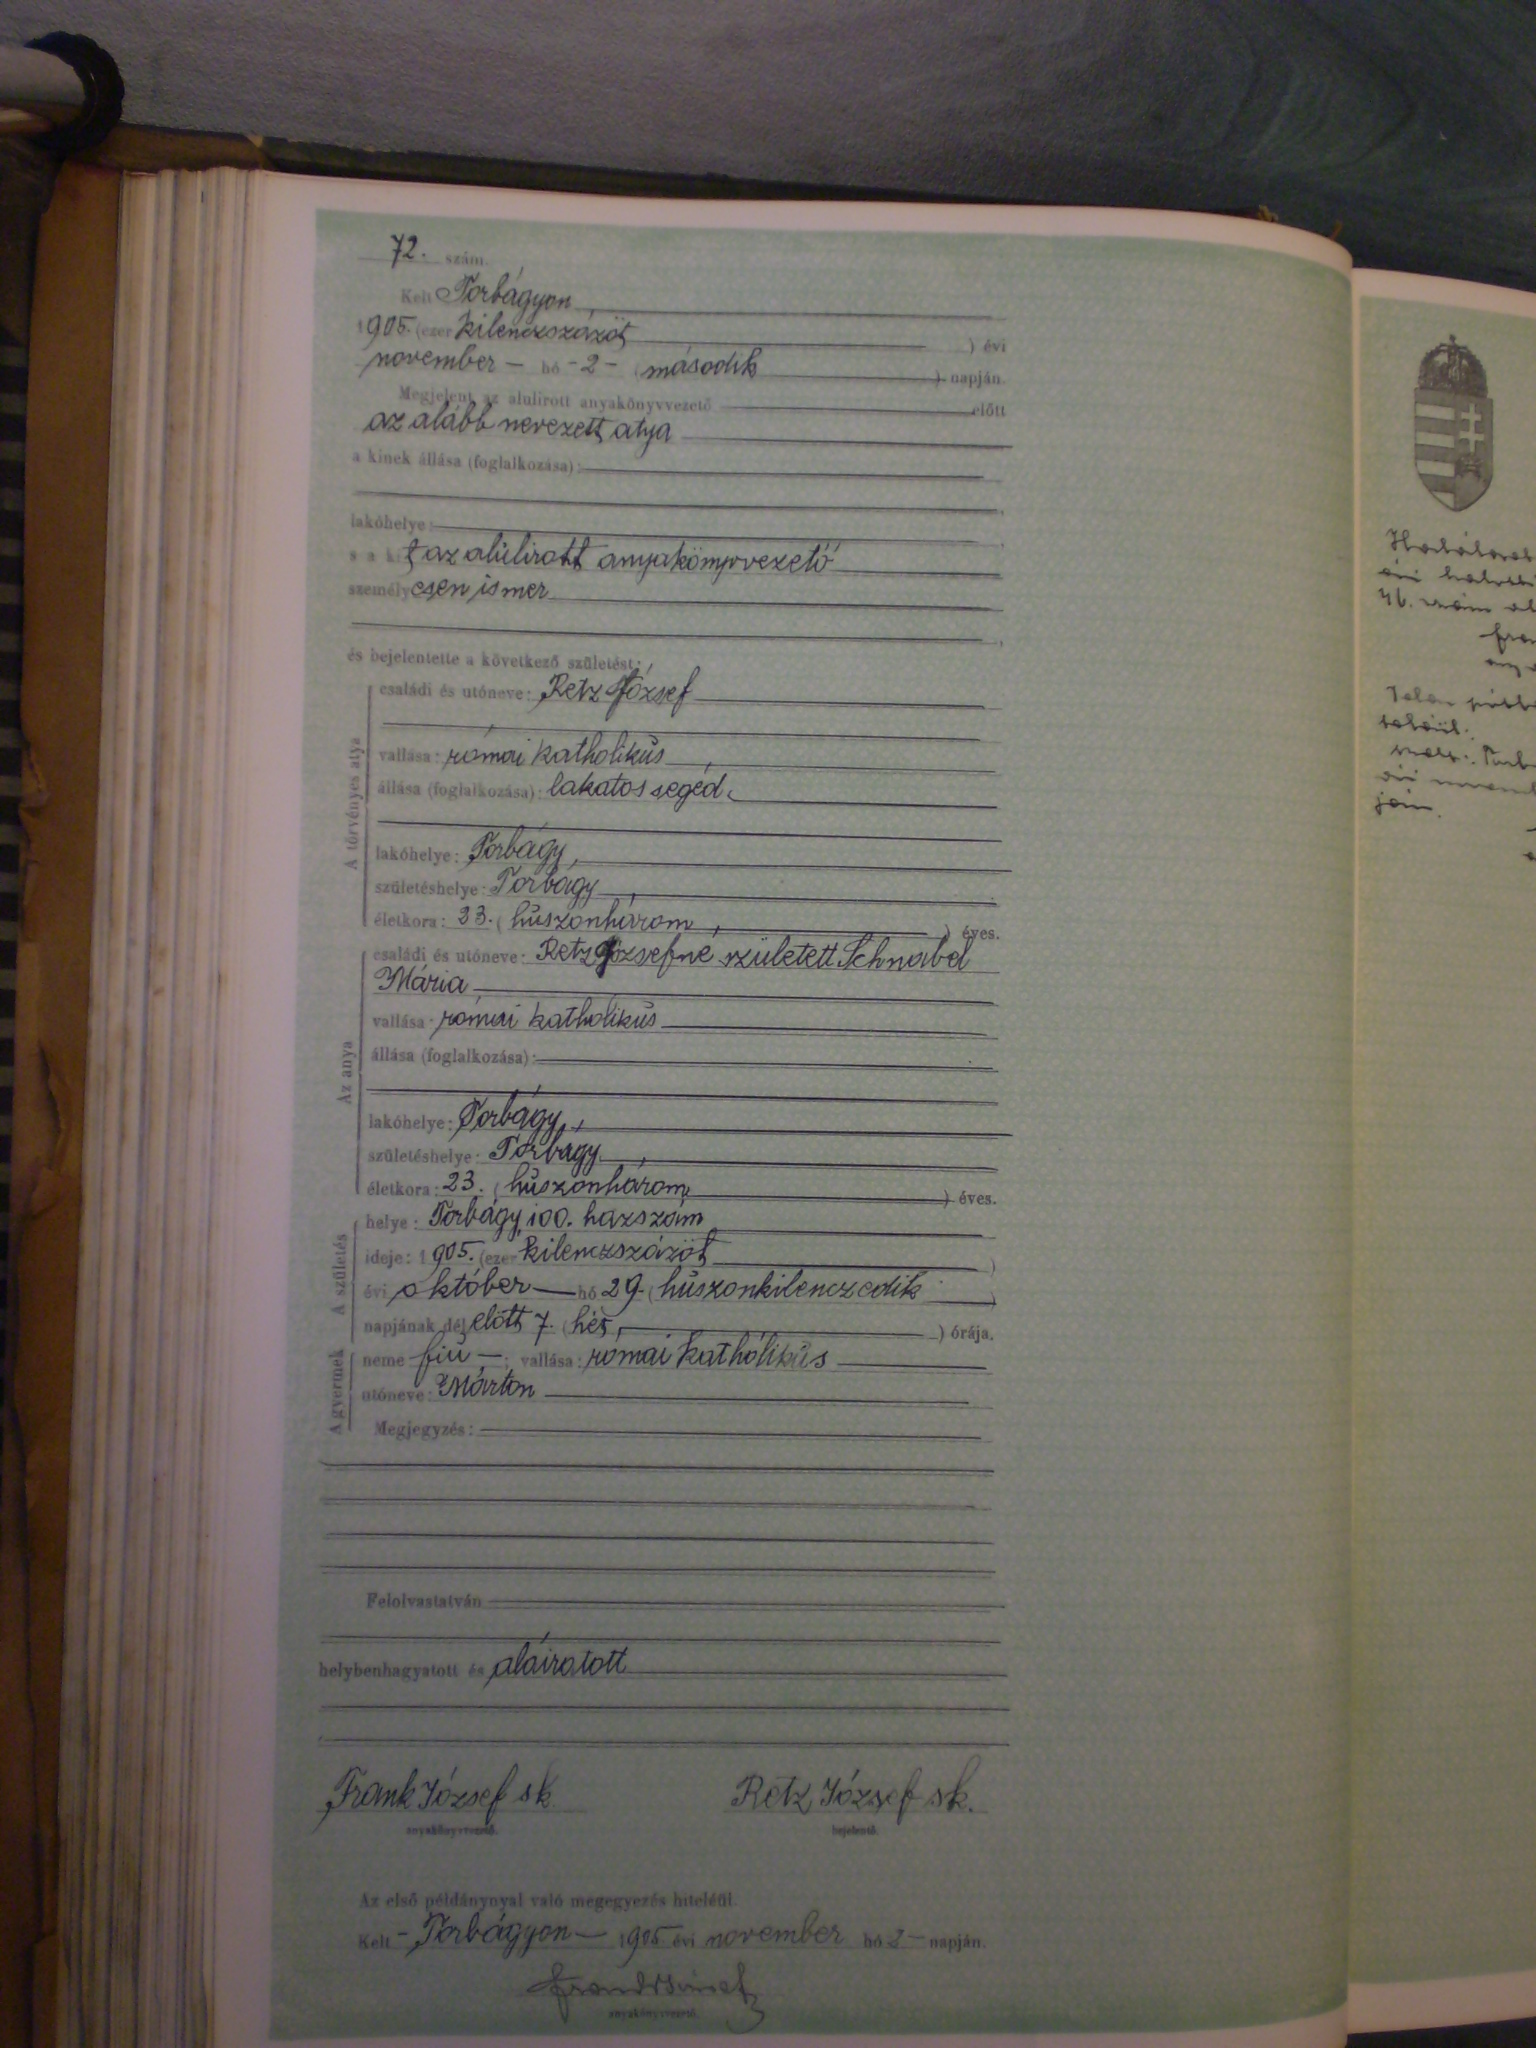 72. szám.
Kelt Torbágyon,
1905. (ezer kilenczszázöt ) évi
november – hó - 2 - (második ) napján.
Megjelent az alulirott anyakönyvvezető előtt
az alább nevezett atya
a kinek állása (foglalkozása):
lakóhelye:
s a kit az alulirott anyakönyvvezető
személyesen ismer
és bejelentette a következő születést:
A törvényes atya
családi és utóneve: Retz József
vallása: római katholikus,
állása (foglalkozása): lakatos segéd,
lakóhelye: Torbágy,
születéshelye: Torbágy,
életkora: 23. (huszonhárom, ) éves.
Az anya
családi és utóneve: Retz Józsefné született Schnabel
Mária
vallása: római katholikus
állása (foglalkozása):
lakóhelye: Torbágy,
születéshelye: Torbágy,
életkora: 23. (huszonhárom ) éves.
A születés
helye: Torbágy, 100. házszám
ideje: 1905. (ezer kilenczszázöt )
évi október — hó 29. (huszonkilenczedik )
napjának dél előtt 7. (hét, ) órája.
A gyermek
neme fiu —; vallása: római katholikus
utóneve: Márton
Megjegyzés:
Felolvastatván
helybenhagyatott és aláiratott
Frank József sk. Retz József sk.
anyakönyvvezető. bejelentő.
Az első példánynyal való megegyezés hiteléül.
Kelt - Torbágyon — 1905 évi november hó 2 - napján.
Frank József
anyakönyvvezető.
46. szám